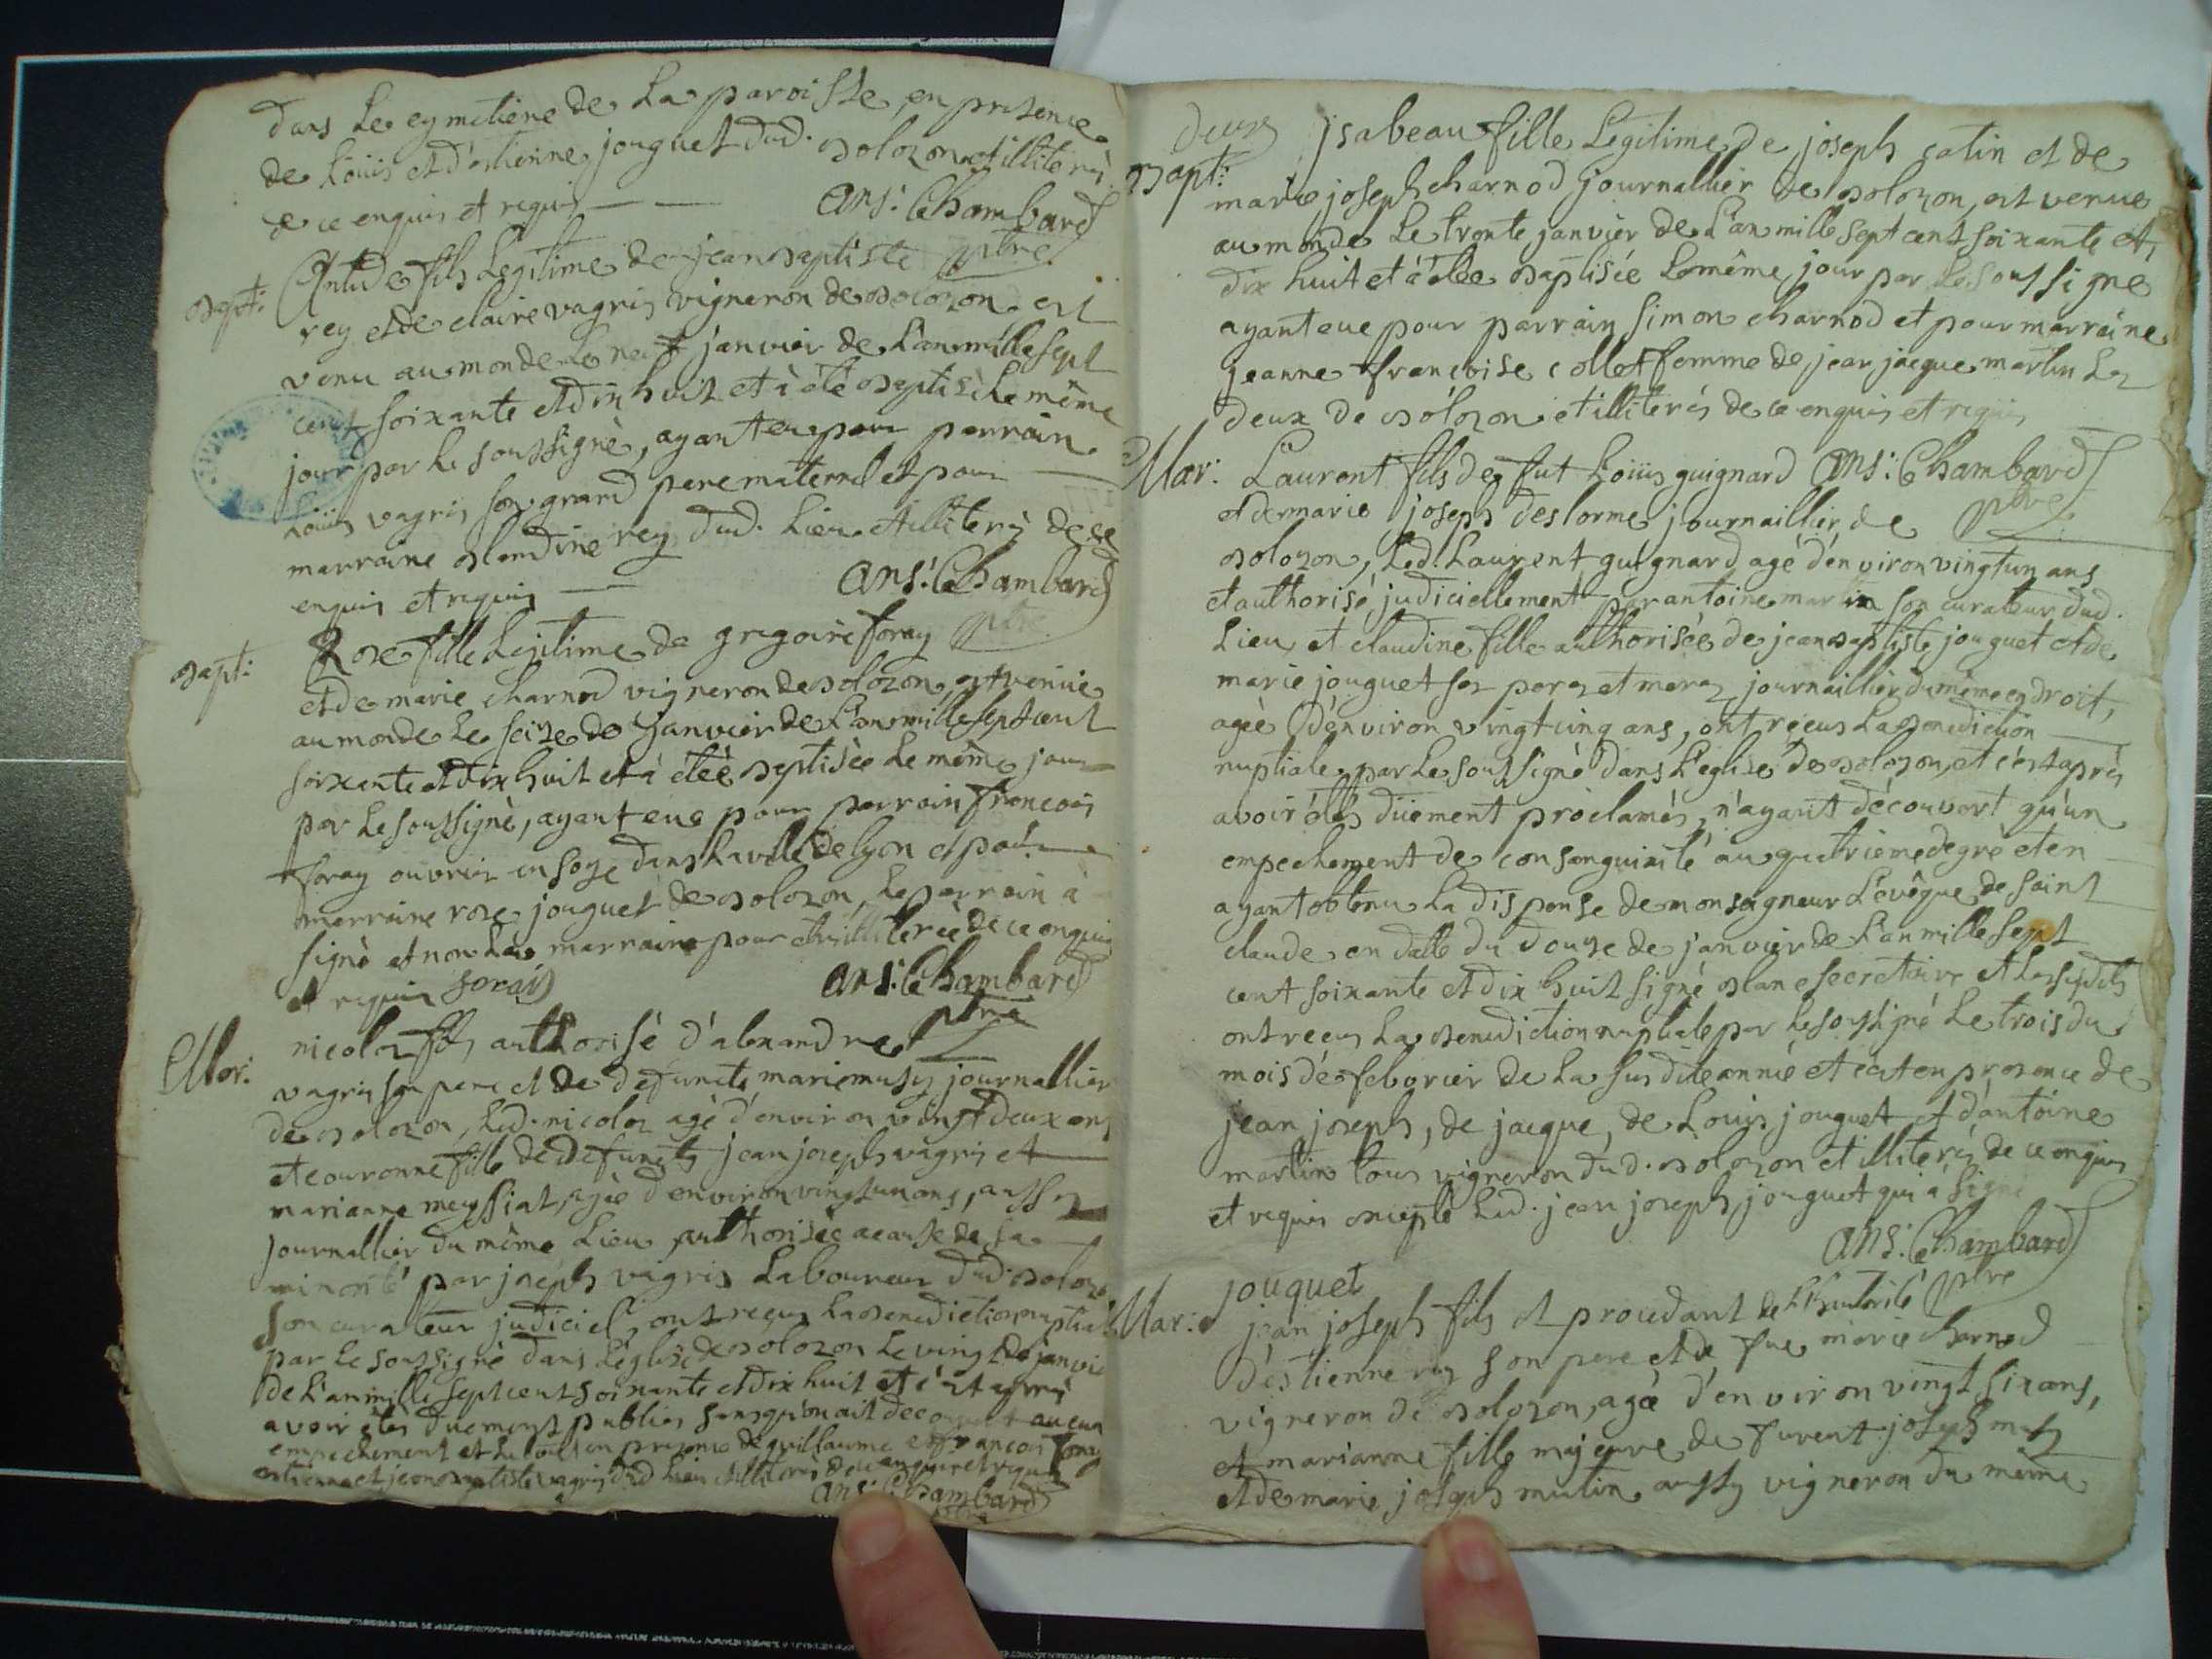 dans Le cymetiere de La paroisse en presence
de Loüis et d'estienne jouguet dud. bolozon et illiterés
de ce enquis et requis
ans: Chambard
ptre
bapt:
Antide fils Legitime de jean baptiste
rey et de claire vagris vigneron de bolozon est
venu au monde Le neuf janvier de L'an mille sept
cent soixante et dix huit et à été baptisé Le même
jour par Le soussigné, ayant eu pour parrain
Loüis vagris son grand pere maternel et pour
marraine blandine rey dud. Lieu et illiterés de ce
enquis et requis
ans: Chambard
ptre
bapt:
Rose fille Legitime de gregoire foray
et de marie charnod vigneron de bolozon est venüe
au monde Le seize de janvier de L'an mille sept cent
soixante et dix huit et à étée baptisée Le même jour
par Le soussigné, ayant eue pour parrain francois
foray ouvrier en soye dans La ville de lyon et pour
marraine rose jouguet de bolozon, Le parrain à
signé et non La marraine pour etre illiterée de ce enquis
et requis foray
ans: Chambard
ptre
Mar:
nicolas fils authorisé d'alexandre
vagris son pere et de defuncte marie musy journallier
de bolozon, Led. nicolas agé d'environ vingt deux ans
et couronne fille de defuncts jean joseph vagris et
marianne meyssiat, agée d'environ vingt un ans, aussy
journallier du même Lieu authorisée a cause de sa
minorité par joseph vagris Laboureur dud. bolozon
son curateur judiciel, ont reçus La benediction nuptiale
par Le soussigné dans L'eglise de bolozon Le vingt de janvier
de L'an mille sept cent soixante et dix huit et c'est apres
avoir étés duement publiés sans qu'on ait decouvert aucun
empechement et Le tout en presence de guillaume et francois foray
estienne et jean baptiste vagris dud Lieu illiterés de ce enquis et requis
ans: Chambard
ptre
deux
bapt:
jsabeau fille Legitime de joseph catin et de
marie joseph charnod journallier de bolozon, est venue
au monde Le trente janvier de L'an mille sept cent soixante et
dix huit et à étée baptisée Le même jour par Le soussigné
ayant eue pour parrain simon charnod et pour marraine
jeanne francoise collet femme de jean jacque martin Les
deux de bolozon et illiterés de ce enquis et requis
ans: Chambard
ptre
Mar:
Laurent fils de fut Loüis guignard
et de marie joseph deslorme journaillier de
bolozon, Led. Laurent guignard agé d'environ vingt un ans
et authorisé judiciellement par antoine martin son curateur dud.
Lieu et claudine fille authorisée de jean baptiste jouguet et de
marie jouguet ses peres et meres journaillier du même endroit,
agée d'environ vingt cinq ans, ont reçus La benediction
nuptiale par Le soussigné dans L'eglise de bolozon, et c'est après
avoir étés düement proclamés, n'ayant découvert qu'un
empechement de consanguinité au quatrieme degré et en
ayant obtenu La dispense de monseigneur L'evêque de saint
claude en datte du douze de janvier de L'an mille sept
cent soixante et dix huit signé blanc secretaire et Les susdits
ont reçus La benediction nuptiale par Le soussigné Le trois du
mois de febvrier de La susdite année et c'est en presence de
jean joseph, de jacque, de Louis jouguet et d'antoine
martin tous vigneron dud. bolozon et illiterés de ce enquis
et requis excepté Led. jean joseph jouguet qui à signé
ans: Chambard
ptre
jouguet
Mar:
jean joseph fils et procedant de L'authorité
d'estienne rey son pere et de fue marie charnod
vigneron de bolozon, agé d'environ vingt six ans,
et marianne fille majeure de furent joseph musy
et de marie joseph mulin aussy vigneron du même